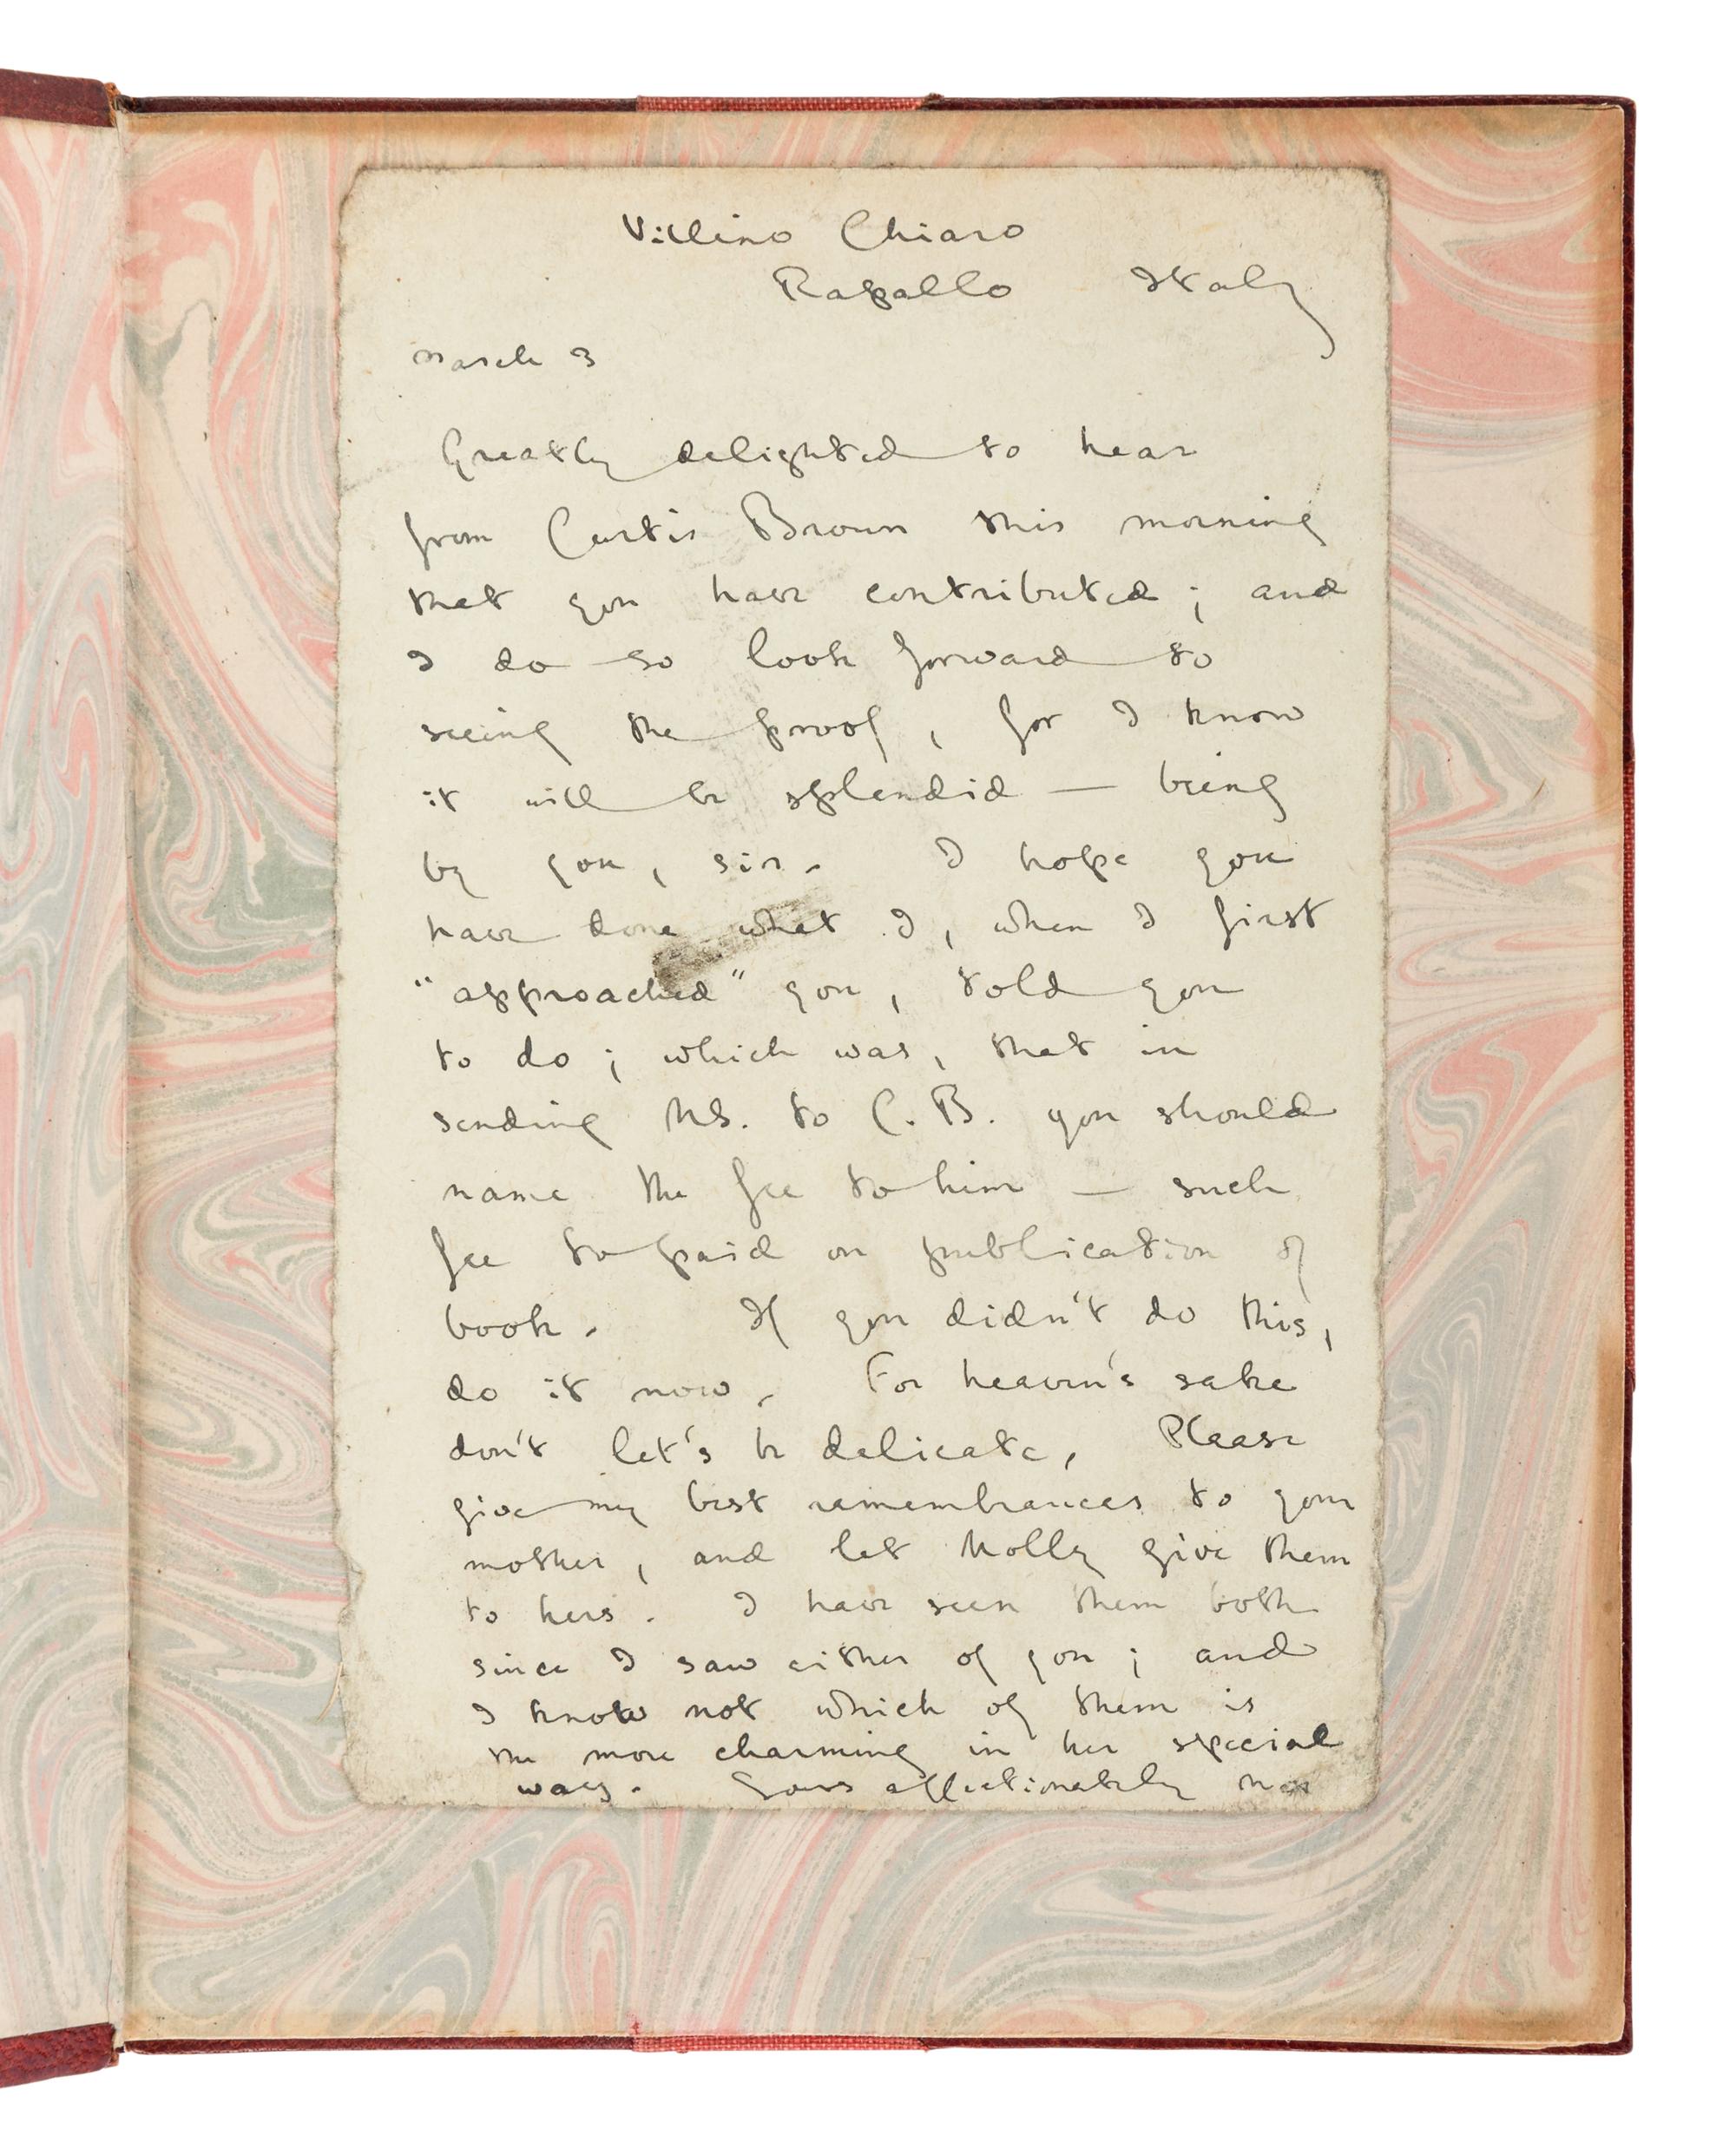 Villino Chiaro
Rapallo Italy
March 3
Greatly delighted to hear
from Curtis Brown this morning
that you have contributed ; and
I do so look forward to
seeing the proof , for I know
it will be splendid — being
by you , sir . I hope you
have done what I , when I first
“ approached ” you , told you
to do ; which was , that in
sending MS. to C. B. you should
name the fee to him — such
fee to paid on publication of
book . If you didn't do this ,
do it now . For heaven's sake
don't let's be delicate , Please
give my best remembrances to your
mother , and let Molly give them
to hers . I have seen them both
since I saw either of you ; and
I know not which of them is
the more charming in her special
way . Yours affectionately Max